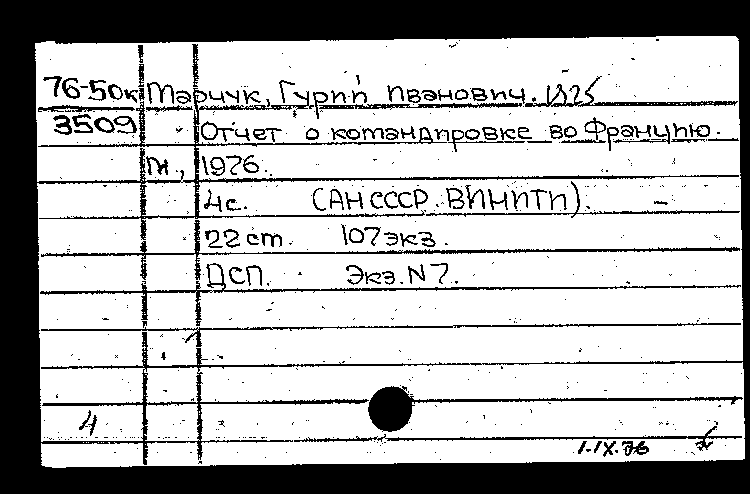 76-50к Марчук, Гурий Иванович. 1925
3509 Отчет о командировке во Францию.
М, 1976.
4с. (АН СССР. ВИНИТИ).
22 ст. 107 экз.
ДСП. Экз. N 7.
4
1.IX.76